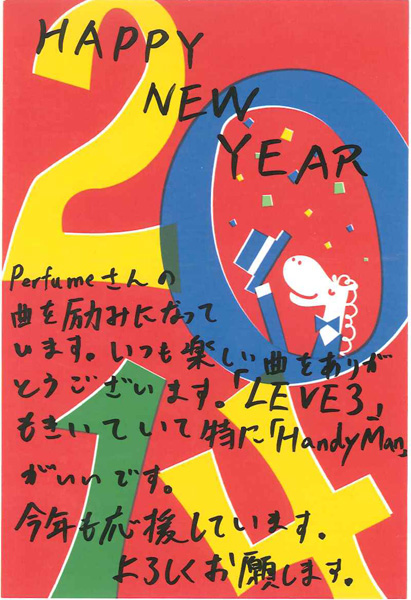 HAPPY
NEW
YEAR
2014
Perfumeさんの
曲を励みになって
います。いつも楽しい曲をありが
とうございます。「LEVE3」
もきいていて特に「HandyMan」
がいいです。
今年も応援しています。
よろしくお願します。